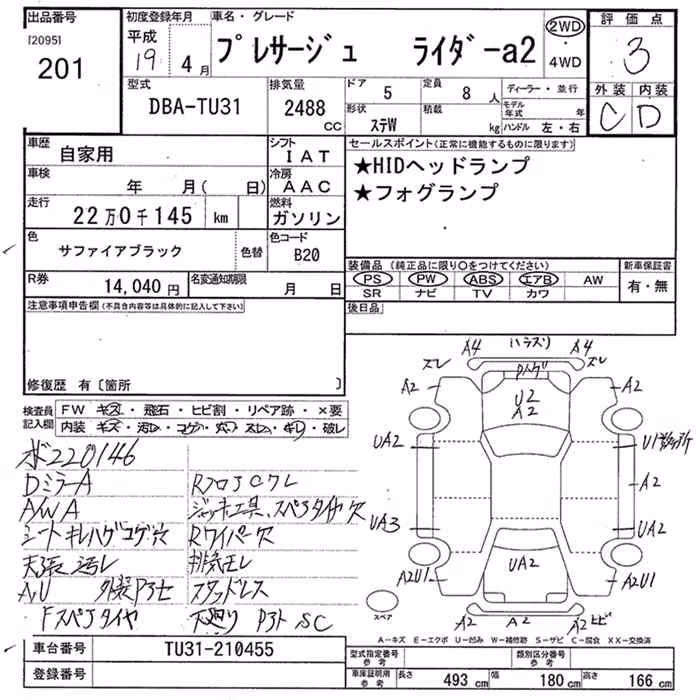 出品番号 初度登録年月 車名・グレード 評価点
[2095] 平成 2WD
201 19年 4月 プレサージュ ライダーa2 4WD 3
型式 排気量 ドア 5 定員 8人 ディーラー・並行 外装 内装
DBA-TU31 2488 cc 形状 ステW 積載 kg モデル年式 年 C D
ハンドル 左・右
車歴 自家用 シフト IAT セールスポイント(正常に機能するものに限ります)
車検 年 月( 日) 冷房 AAC ★HIDヘッドランプ
走行 22万0千145 km 燃料 ガソリン ★フォグランプ
色 サファイアブラック 色替 色コード B20
装備品(純正品に限り○をつけてください) 新車保証書
R券 14,040円 名変通知期限 月 日 PS PW ABS エアB AW 有・無
SR ナビ TV カワ
注意事項申告欄(不具合内容等は具体的に記入して下さい) 後日品
修復歴 有〔箇所 〕
検査員記入欄 FW キズ・飛石・ヒビ割・リペア跡・×要
内装・キズ・汚レ・コゲ・穴・スレ・キレ・破レ
ボ220146
DミラーA RフロアJCワレ
AWA ジャッキ工具、スペアタイヤ欠
シートキレハゲコゲ穴 Rワイパー欠
天張汚レ
A,U スタッドレス
Fスペアタイヤ SC
A4 A4
スレ スレ
A2 U2 A2 A2
UA2 A2
UA3 UA2 UA2
A2U1 A2U1
A2 A2 ヒビ
スペア
A-キズ E-エクボ U-凹み W-補修跡 S-サビ C-腐食 XX-交換済
車台番号 TU31-210455 型式指定番号 参考 類別区分番号 参考
登録番号 車庫証明用 参考 長さ 493 cm 幅 180 cm 高さ 166 cm